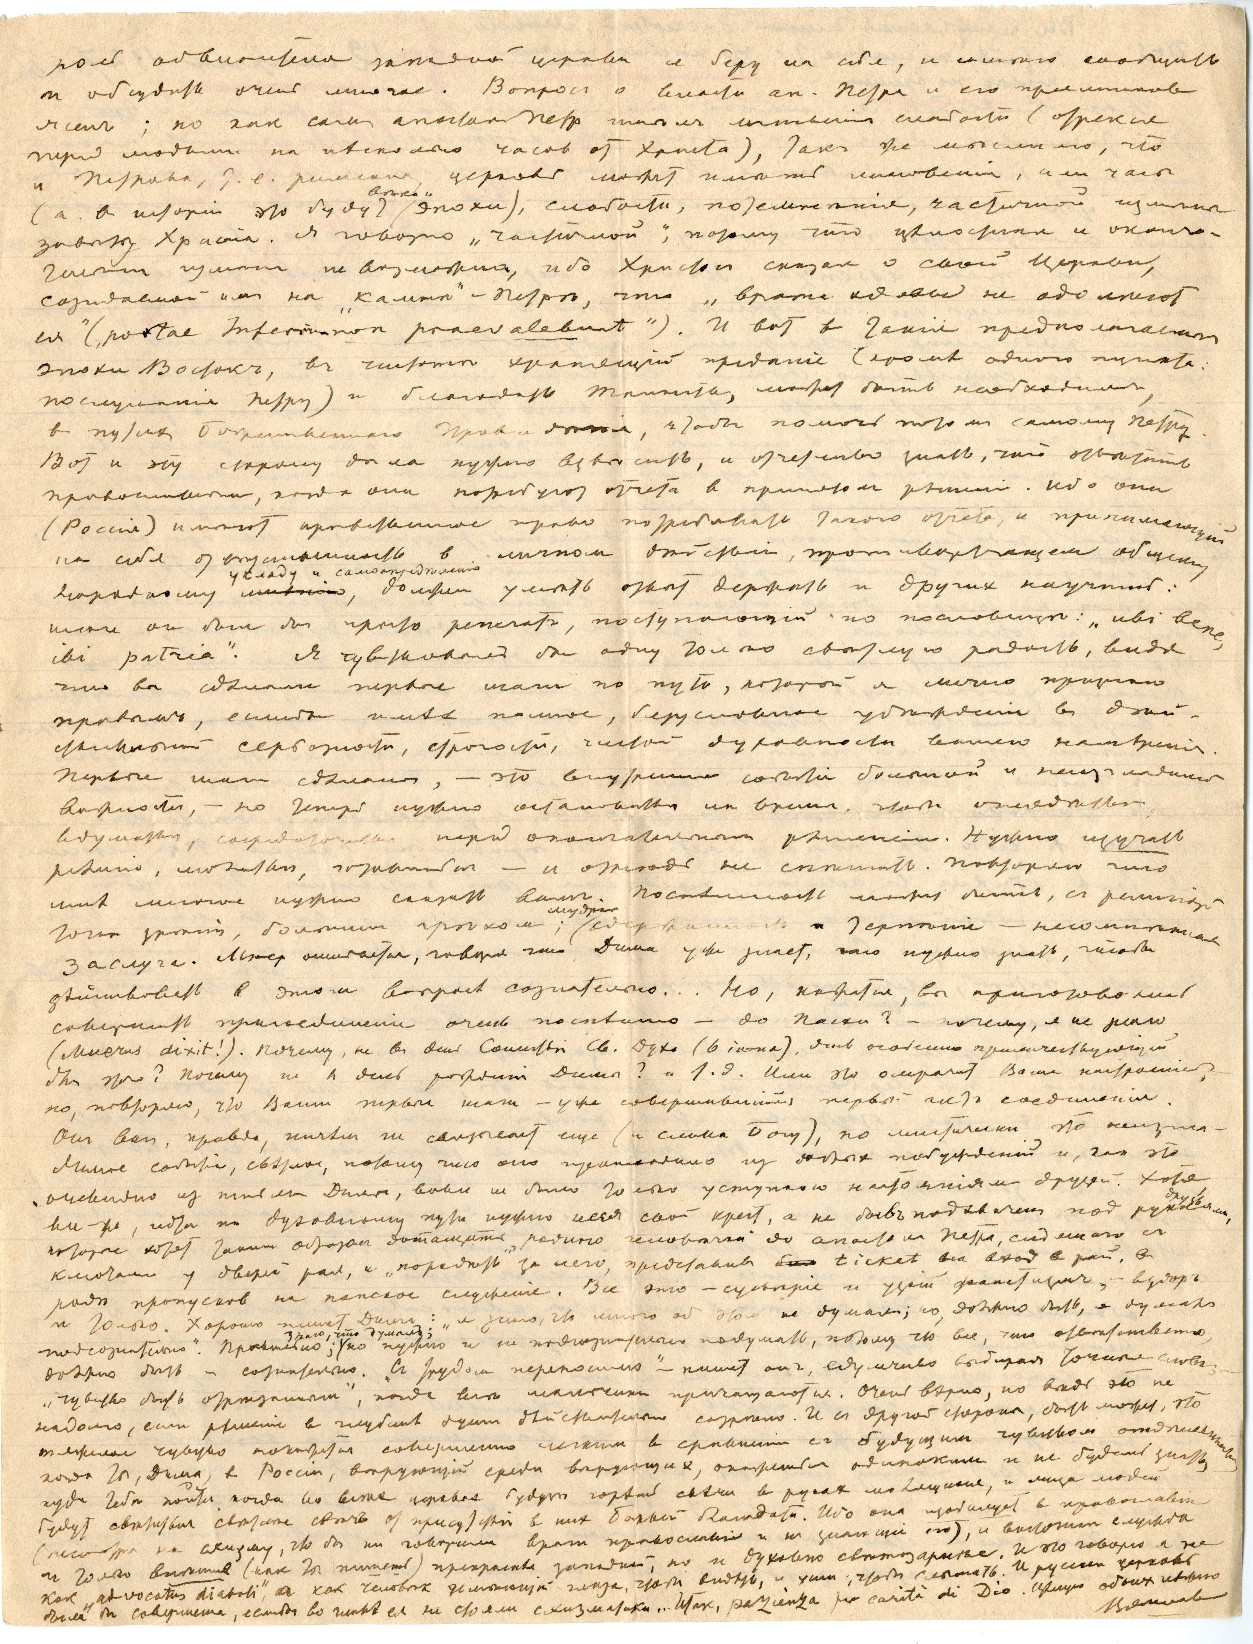 роль обвинителя западной церкви я беру на себя, и
и обсудить очень многое. Вопрос о власти ап. Петра и его преемников
ясен; но как сам апостол Петр имел мгновения слабости (отрекся
перед людьми на несколько часов от Христа), так же мыслимо, что
и Петрова, т. е. римская, церковь может иметь мгновенія, или часы
(а в исторіи это будут века и эпохи), слабости, частичной измены
завету Христа. Я говорю „частичной", потому что целостная и оконча-
тельная измена невозможна, ибо Христос сказал о своей Церкви,
созидаемой им на „камне" – Петре, что „врата адовы не одолеют
ея" („portae Inferi non praevalebunt"). И вот в такие предполагаемые
эпохи Востокъ, в чистоте хранящий преданіе (кроме одного пункта:
послушания Петру) и благодать таинств, может быть необходим,
в путях Божественного Провидения, чтобы помочь потом самому Петру.
Вот и эту сторону дела нужно взвесить, и отчетливо знать, что ответить
православным, когда они потребуют отчета в принятом решении. Ибо они
(Россія) имеют нравственное право потребовать такого отчета, и принимающий
на себя ответственность в личном действии, противоречащем общему
народному укладу и самоопределению, должен уметь ответ держать и других научить:
иначе он был бы просто ренегат, поступающий по пословице: „ubi bene,
ibi patria". Я чувствовал бы одну только светлую радость, видя
что вы сделали первые шаги по пути, который я лично признаю
правым, если бы имел полное, безусловное убеждение в дей-
ствительной серьезности, строгости, чистой духовности вашего намеренія.
Первые шаги сделаны, – это внутренно событіе большой и неизгладимой
важности, – но теперь нужно остановиться на время, чтобы
вдуматься, сосредоточиться перед окончательным решеніем. Нужно изучать
религію, молиться, готовиться – и отнюдь не спешить. Повторяю что
мне многое нужно сказать вам. Поспешность может быть, с религіоз-
ной точки зренія, большим грехом; мудрая сдержанность и терпеніе – несомненная
заслуга. ошибается, говоря что Дима уже знает, что нужно знать, чтобы
действовать в этом вопросе сознательно... Но, кажется, вы приготовились
совершить присоединеніе очень поспешно – до Пасхи? – почему, я не знаю
(Mucius dixit!). Почему, не в день Сошествія Св. Духа (6 іюня), день особенно приличествующій
для этого? Почему не в день рожденія Димы? и т. д. Или это омрачит Ваше настроеніе?
но, повторяю, что Ваши первые шаги – уже совершившійся первый актъ соединенія.
Он Вас, правда, ничем не связывает еще (и слава Богу), но мистически это неизгла-
димое событіе, светлое, потому что оно проистекло из добрых побужденій и, как это
очевидно из письма Димы, вовсе не было только уступкою настояніям друзей. Хотя
вы же, идя по духовному пути нужно неся свой крест, а не быть подхвачену под руки друзьями,
которые хотят таким образом дотащить до апостола Петра, сидящего с
ключами у дверей рая, и „порадеть" за него, представив ticket на вход в рай, в
роде пропусков на папское служеніе. Все это – суеверіе и фантазия, – вздор
и только. Хорошо пишет Дима: „я знаю, что много об этом не думал; но, должно быть, я думал
подсознательно". знаю, что думал; но нужно и не подсознательно подумать, потому что все, что ответственно,
должно быть и сознательно. „С трудом переносимо" – пишет он, вдумчиво выбирая точные слова –
„чувство быть отрезанным", когда все причащаются. Очень верно, но ведь это не
надолго, если решеніе в глубине души действительно созрело. И с другой стороны, быть может, это
тяжелое чувство покажется совершенно легким в сравненіи с будущим чувством отъединенности,
когда ты, Дима, в Россіи, верующій среди верующих, окажешься одиноким и не будешь знать,
куда тебе пойти, когда во всех церквах будут гореть свечи в руках молящихся, и лица людей
будут светиться светлее свечи от присутствія в них Божьей благодати. Ибо она изобилует в православіи
(несмотря на схизму, что бы ни говорили враги православія и не знающіе его), и
не только внешние (как ты пишешь) прекраснее западной, но и духовно святозарнее. И это говорю я не
как „advocatus diaboli", а как человек имеющий глаза, чтобы видеть, и уши, чтобы слышать. И русская церковь
была бы совершенна, если бы во главе ея не стояли схизматики... Итак, pazienza per carità di Dio. Целую обоих нежно
Вячеслав